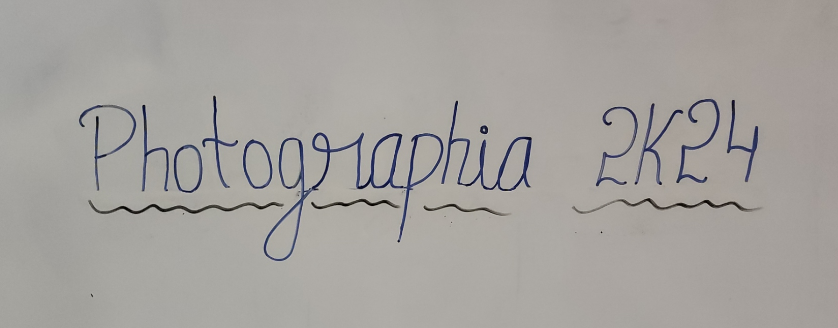 Photographia 2K24